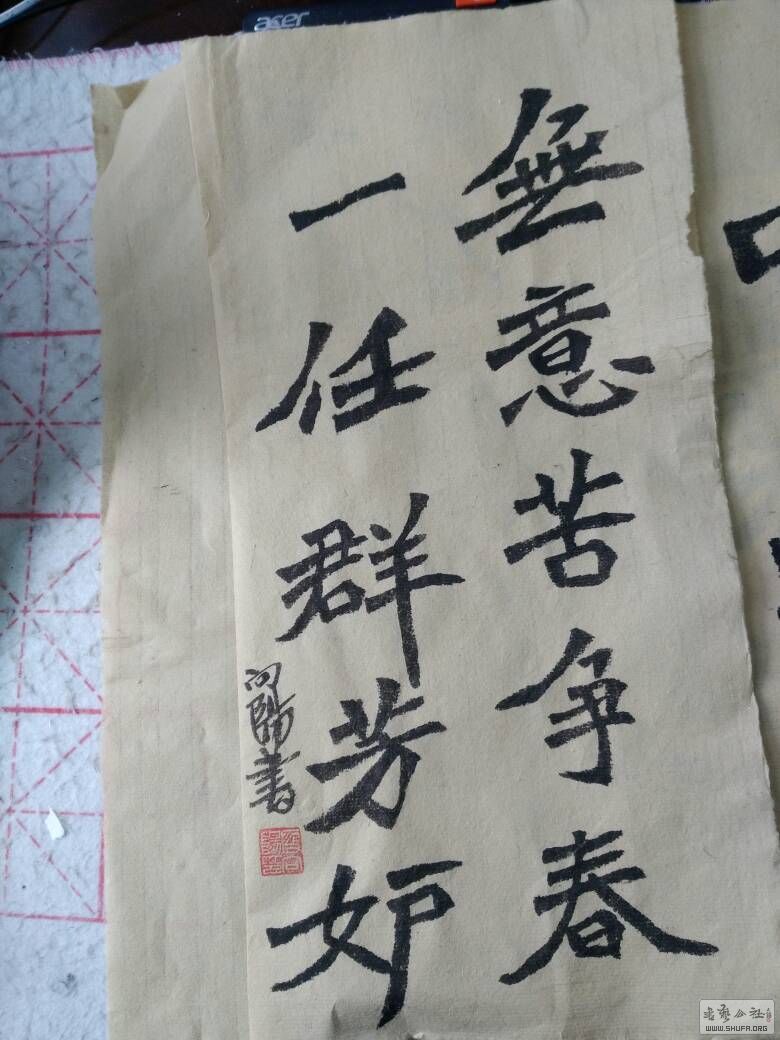 無意苦争春
一任群芳妒
向陽書
acer
书艺公社
WWW.SHUFA.ORG